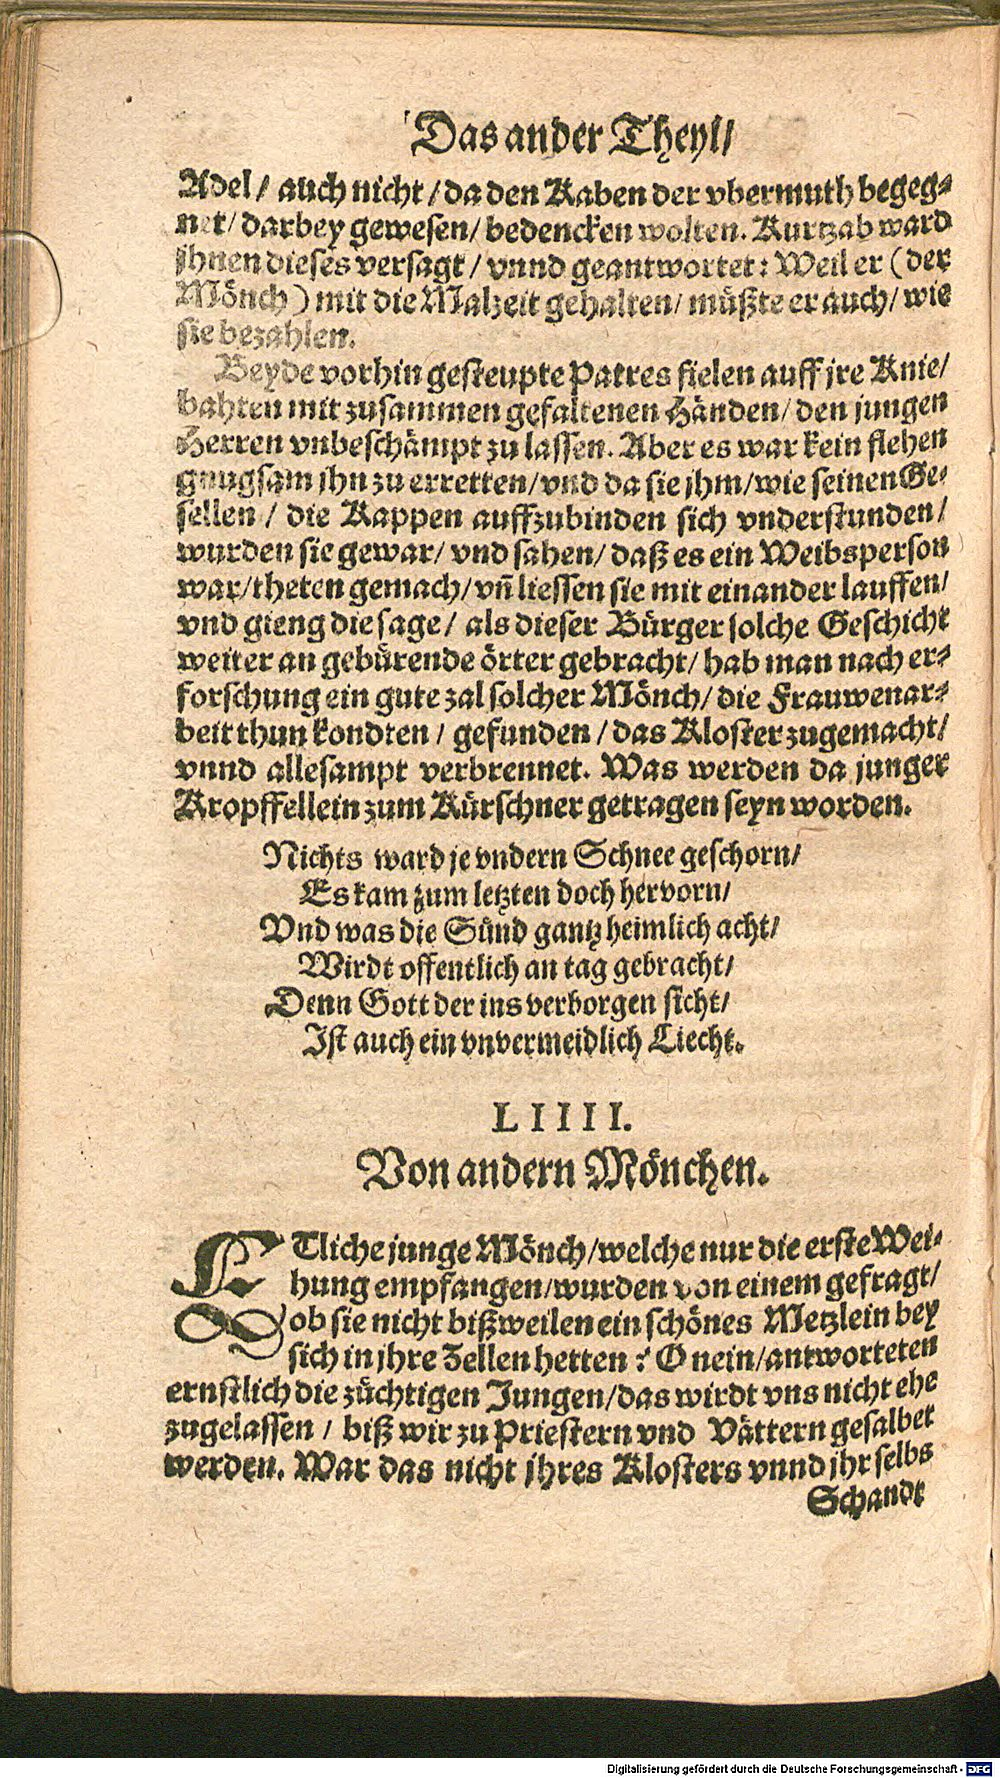 Das ander Theyl/
Adel/ auch nicht/ da den Raben der vbermuth begeg⸗
net/ darbey gewesen/ bedencken wolten. Kurtzab ward
jhnen dieses versagt/ vnnd geantwortet: Weil er (der
Mönch) mit die Malzeit gehalten/ müßte er auch/ wie
sie bezahlen.
Beyde vorhin gesteupte Patres fielen auff jre Knie/
bahten mit zusammen gefaltenen Händen/ den jungen
Herren vnbeschämpt zu lassen. Aber es war kein flehen
gnugsam jhn zu erretten/ vnd da sie jhm/ wie seinen Ge⸗
sellen/ die Kappen auffzubinden sich vnderstunden/
wurden sie gewar/ vnd sahen/ daß es ein Weibsperson
war/ theten gemach/ vñ liessen sie mit einander lauffen/
vnd gieng die sage/ als dieser Bürger solche Geschicht
weiter an gebürende örter gebracht/ hab man nach er⸗
forschung ein gute zal solcher Mönch/ die Frauwenar⸗
beit thun kondten/ gefunden/ das Kloster zugemacht/
vnnd allesampt verbrennet. Was werden da junger
Kropffellein zum Kürschner getragen seyn worden.
Nichts ward je vndern Schnee geschorn/
Es kam zum letzten doch hervorn/
Vnd was die Sünd gantz heimlich acht/
Wirdt offentlich an tag gebracht/
Denn Gott der ins verborgen sicht/
Ist auch ein vnvermeidlich Liecht.
LIIII.
Von andern Mönchen.
ETliche junge Mönch/ welche nur die erste Wei⸗
hung empfangen/ wurden von einem gefragt/
ob sie nicht bißweilen ein schönes Metzlein bey
sich in jhre Zellen hetten? O nein/ antworteten
ernstlich die züchtigen Jungen/ das wirdt vns nicht ehe
zugelassen/ biß wir zu Priestern vnd Vättern gesalbet
werden. War das nicht jhres Klosters vnnd jhr selbs
Schandt
Digitalisierung gefördert durch die Deutsche Forschungsgemeinschaft - DFG